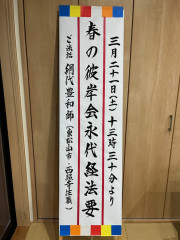 三月二十一日(土)十三時三十分より
春の彼岸会永代経法要
ご法話 網代豊和師(東松山市・西照寺住職)